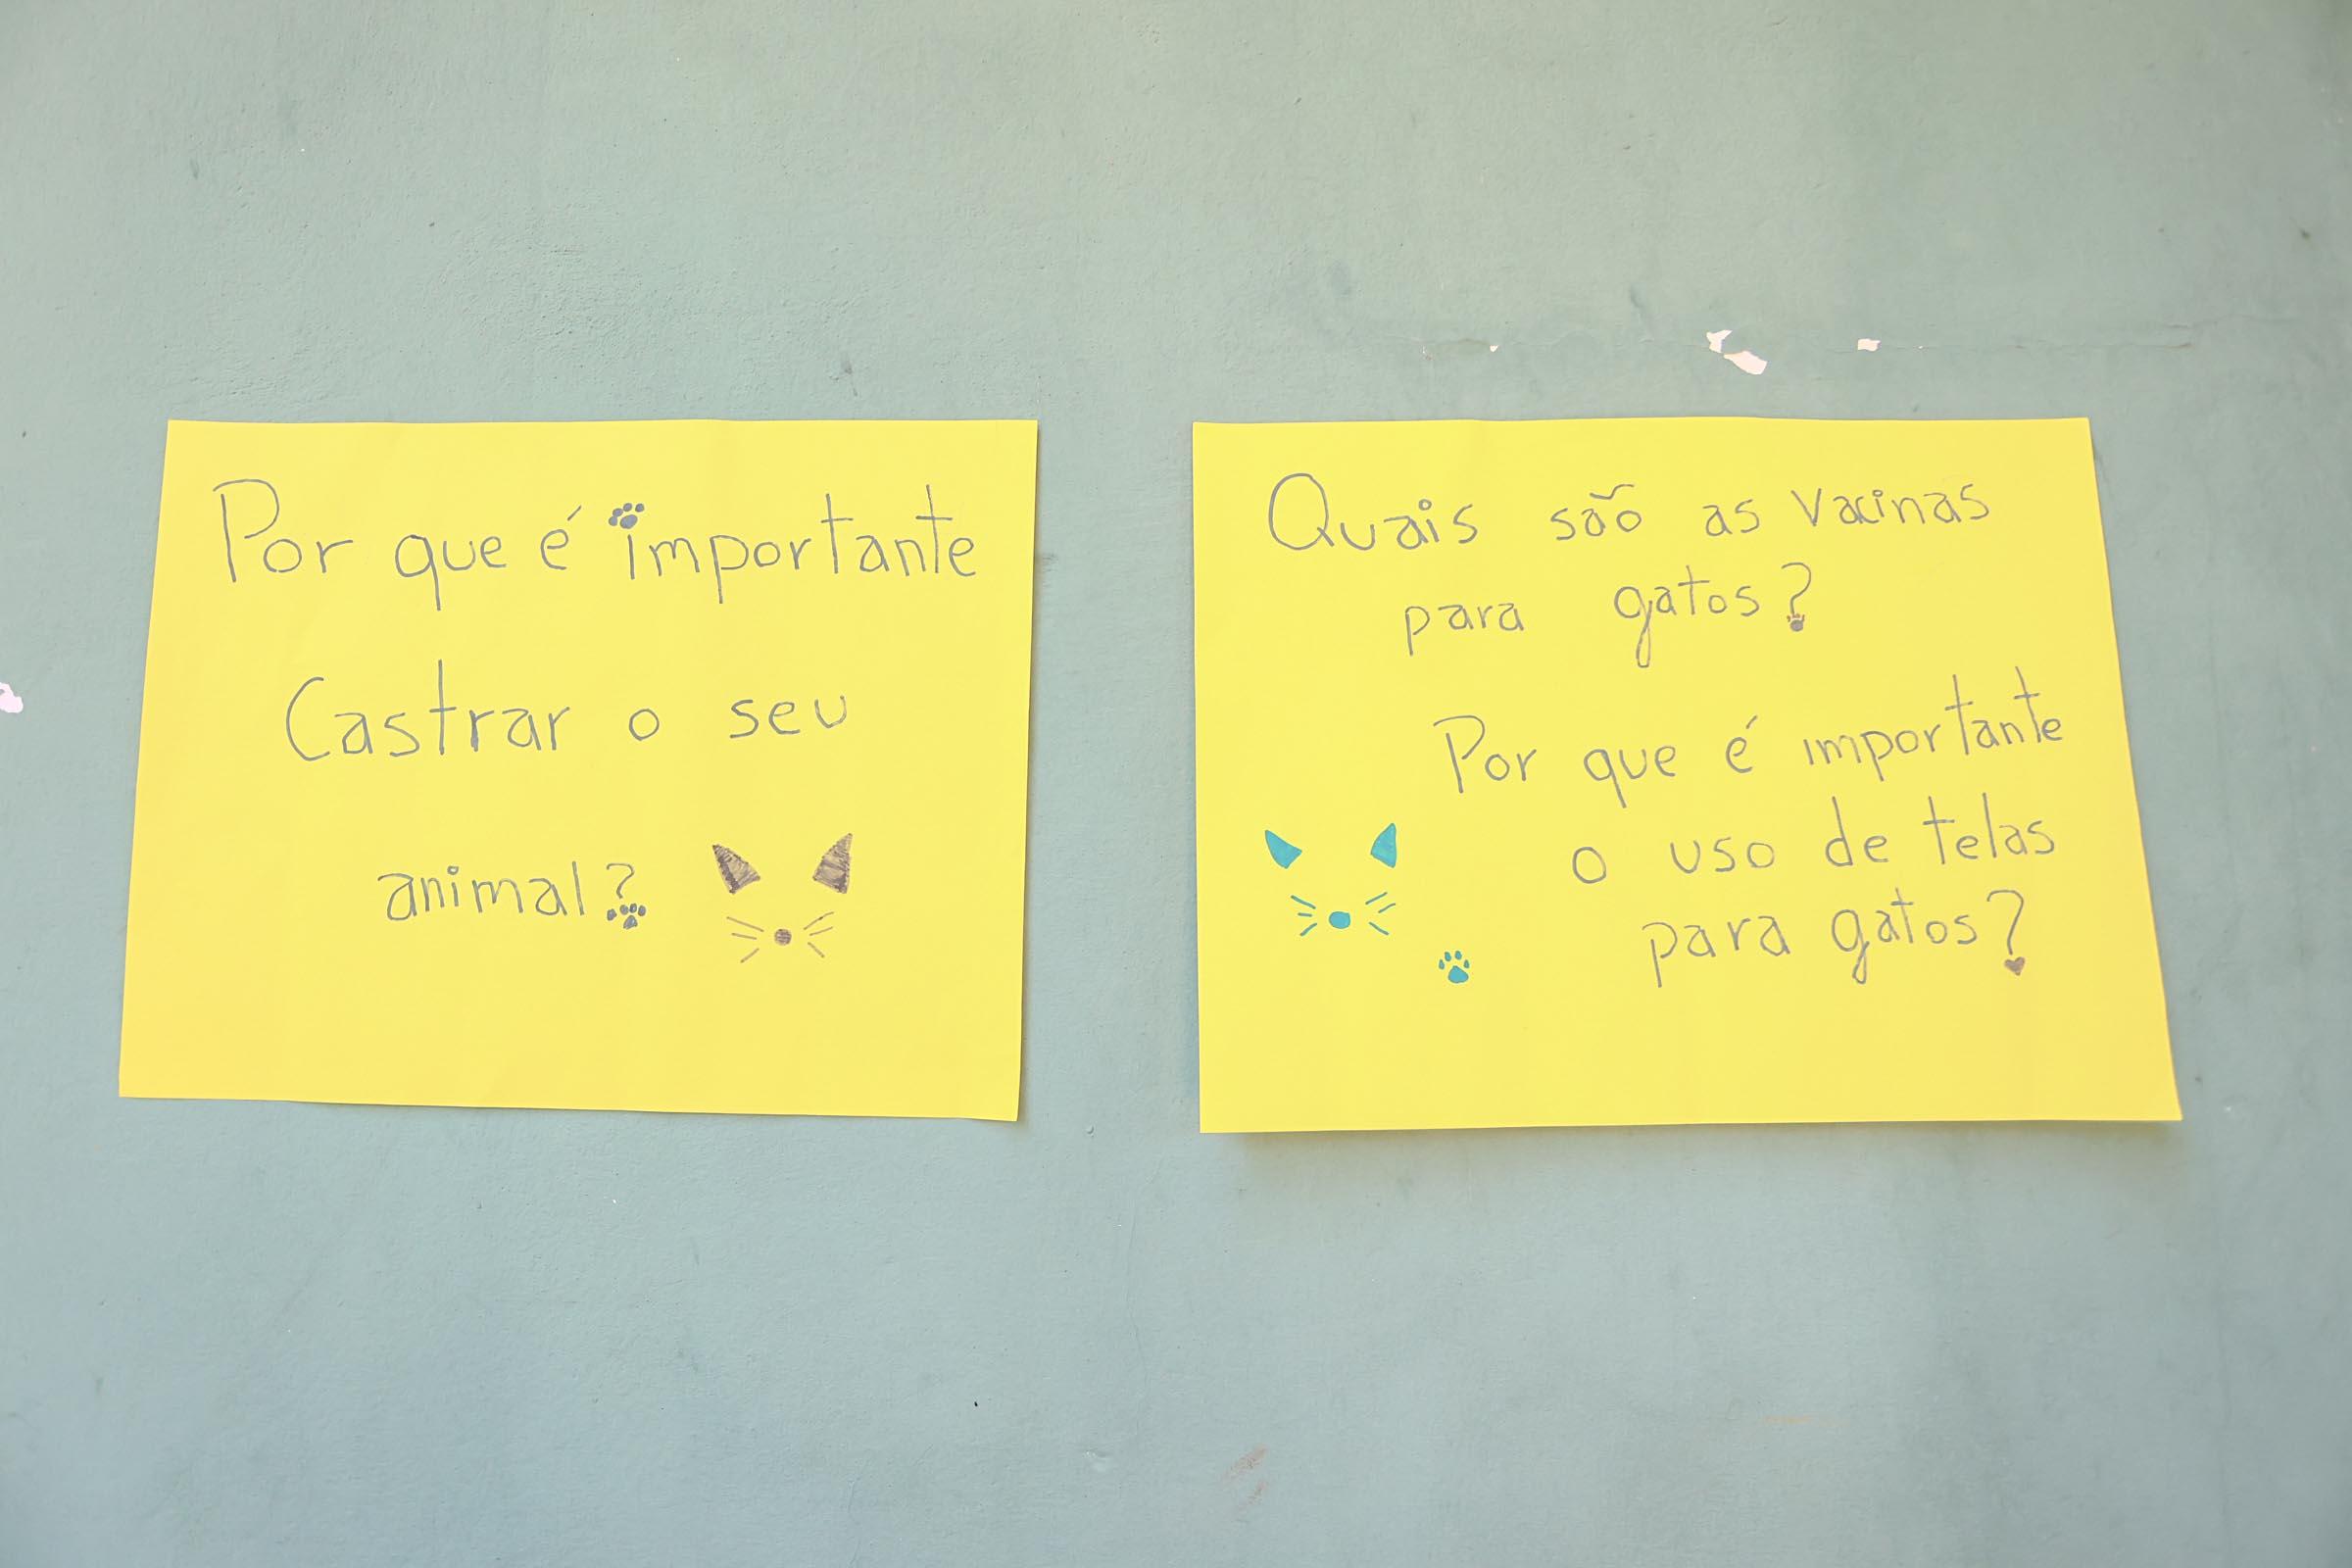 Por que é importante
Castrar o seu
animal?
Quais são as vacinas
para gatos?
Por que é importante
o uso de telas
para gatos?